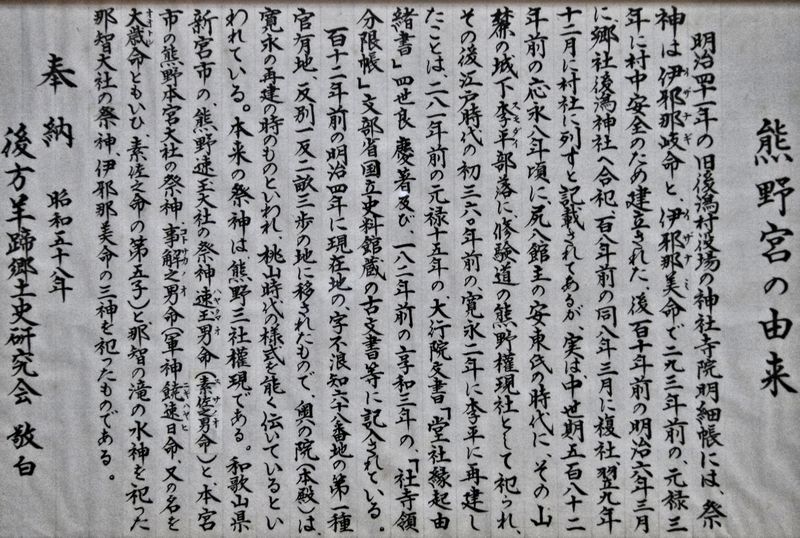 熊野宮の由来
明治四十一年の旧後潟村役場の神社寺院明細帳には、祭
神は伊邪那岐命と、伊邪那美命で二九三年前の、元禄三
年に村中安全のため建立された、後百十年前の明治六年三月
に郷社後潟神社へ合祀、百八年前の同八年三月に複社、翌九年
十二月に村社に列すと記載されてあるが、実は中世期五百八十二
年前の応永八年頃に、尻八館主の安東氏の時代に、その山
麓の城下李平部落に修験道の熊野權現社として祀られ、
その後江戸時代の初三六〇年前の、寛永二年に李平に再建し
たことは、二八一年前の元禄十五年の大行院文書「堂社縁起由
緒書」四世良慶著及び、一八二年前の享和三年の、「社寺領
分限帳」文部省国立史料館蔵の古文書等に記入されている。
百十二年前の明治四年に現在地の、字不浪知六十八番地の第一種
官有地、反別一反二畝三歩の地に移されたもので、奥の院(本殿)は、
寛永の再建の時のものといわれ、桃山時代の様式を能く伝いているとい
われている。本来の祭神は熊野三社權現である。和歌山県
新宮市の、熊野速玉大社の祭神速玉男命(素佐之男命)と、本宮
市の熊野本宮大社の祭神、事解之男命(軍神饒速日命、又の名を
大歳命ともいひ、素佐之命の第五子)と那智の滝の水神を祀った
那智大社の祭神、伊邪那美命の三神を祀ったものである。
奉納 昭和五十八年
後方羊蹄郷土史研究会 敬白